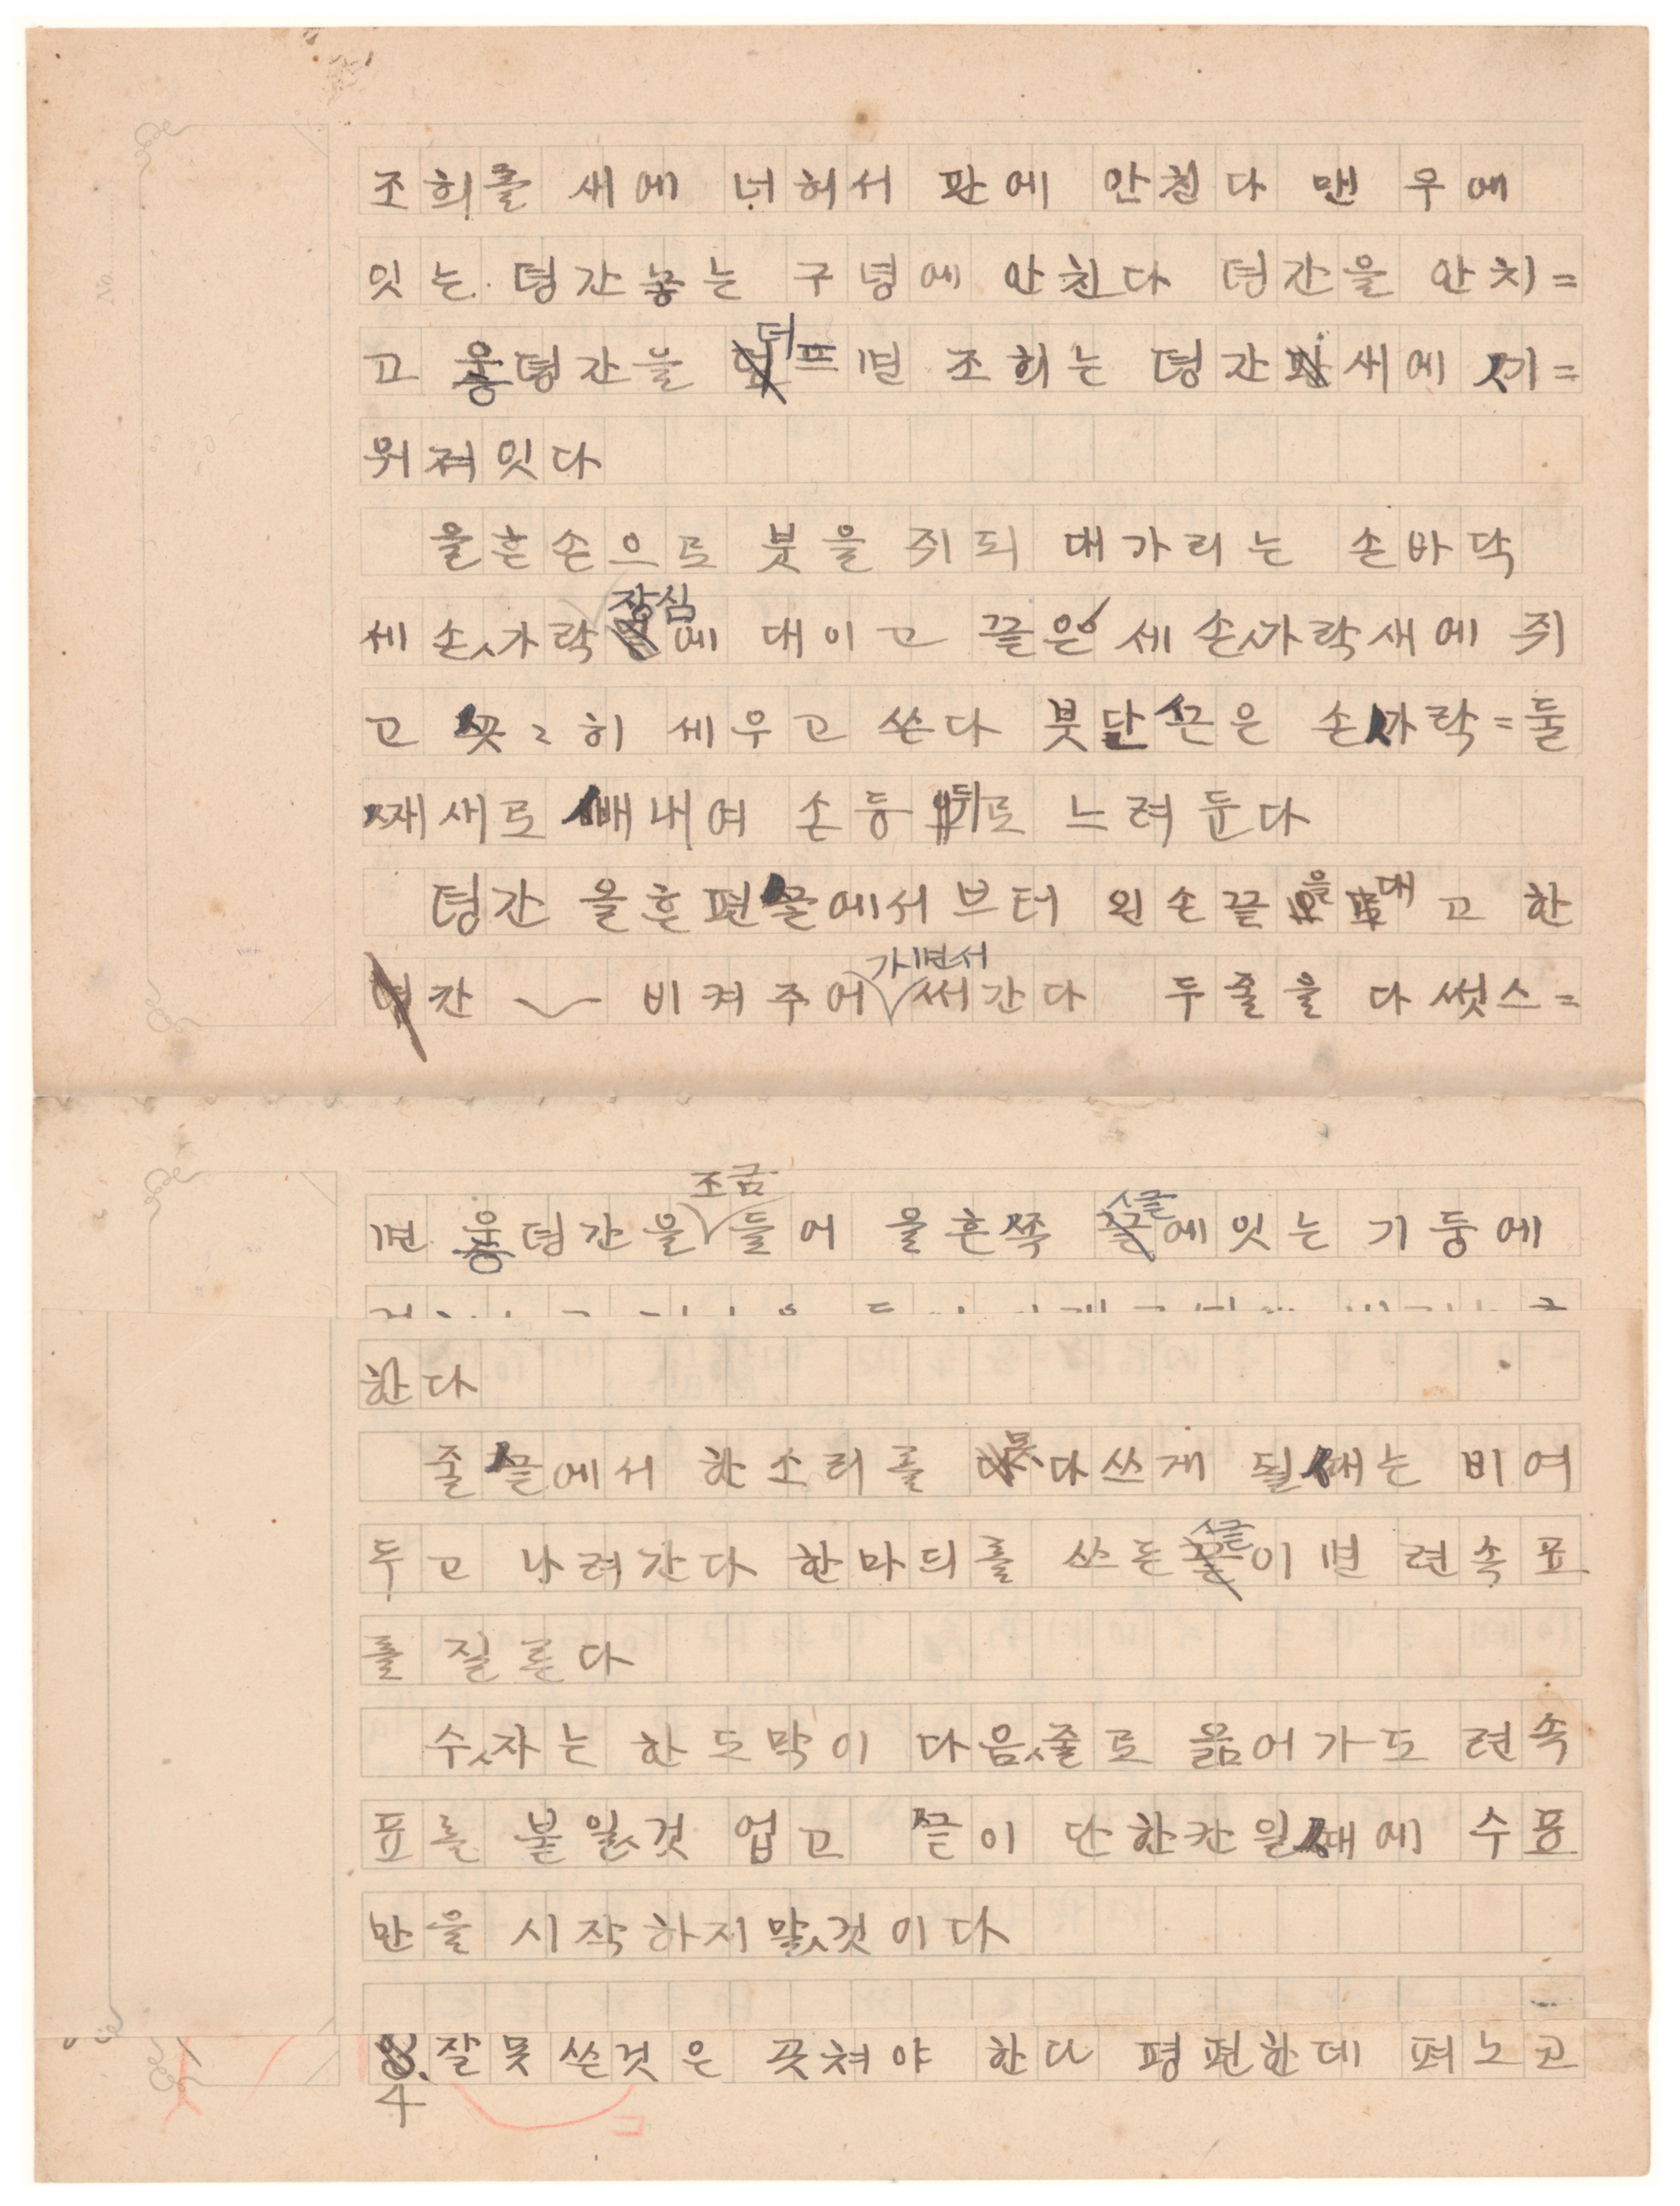 조희를 새에 너허서 판에 안친다 맨 우에
잇는 뎡간놓는 구녕에 안친다 뎡간을 안치=
고 웋뎡간을 더프면 조희는 뎡간새에 ㅅ기=
워져잇다
올흔손으로 붓을 쥐되 대가리는 손바닥
장심
세손ㅅ가락에 대이고 끝은 세손ㅅ가락새에 쥐
고 ㅅ곳ㄱ히 세우고 쓴다 붓단ㅅ근은 손ㅅ가락=둘
ㅅ재새로 ㅅ배내여 손등뒤로 느려둔다
뎡간 올흔편ㅅ글에서브터 왼손끝을 대고 한
칸 비켜주어 써간다 두줄을 다 썻스=
가면서
조금
면 웋뎡간을 들어 올흔쪽 ㅅ글에잇는 기둥에
한다
줄ㅅ글에서 한소리를 못다쓰게 될ㅅ대는 비여
두고 나려간다 한마듸를 쓰든 ㅅ글이면 련속표
를 질른다
수ㅅ자는 한도막이 다음ㅅ줄로 옮어가도 련속
표를 붙일ㅅ것 업고 ㅅ글이 단한칸일ㅅ대에 수표
만을 시작하지말ㅅ것이다
4
잘못쓴것은 곳쳐야 한다 평편한데 펴노고